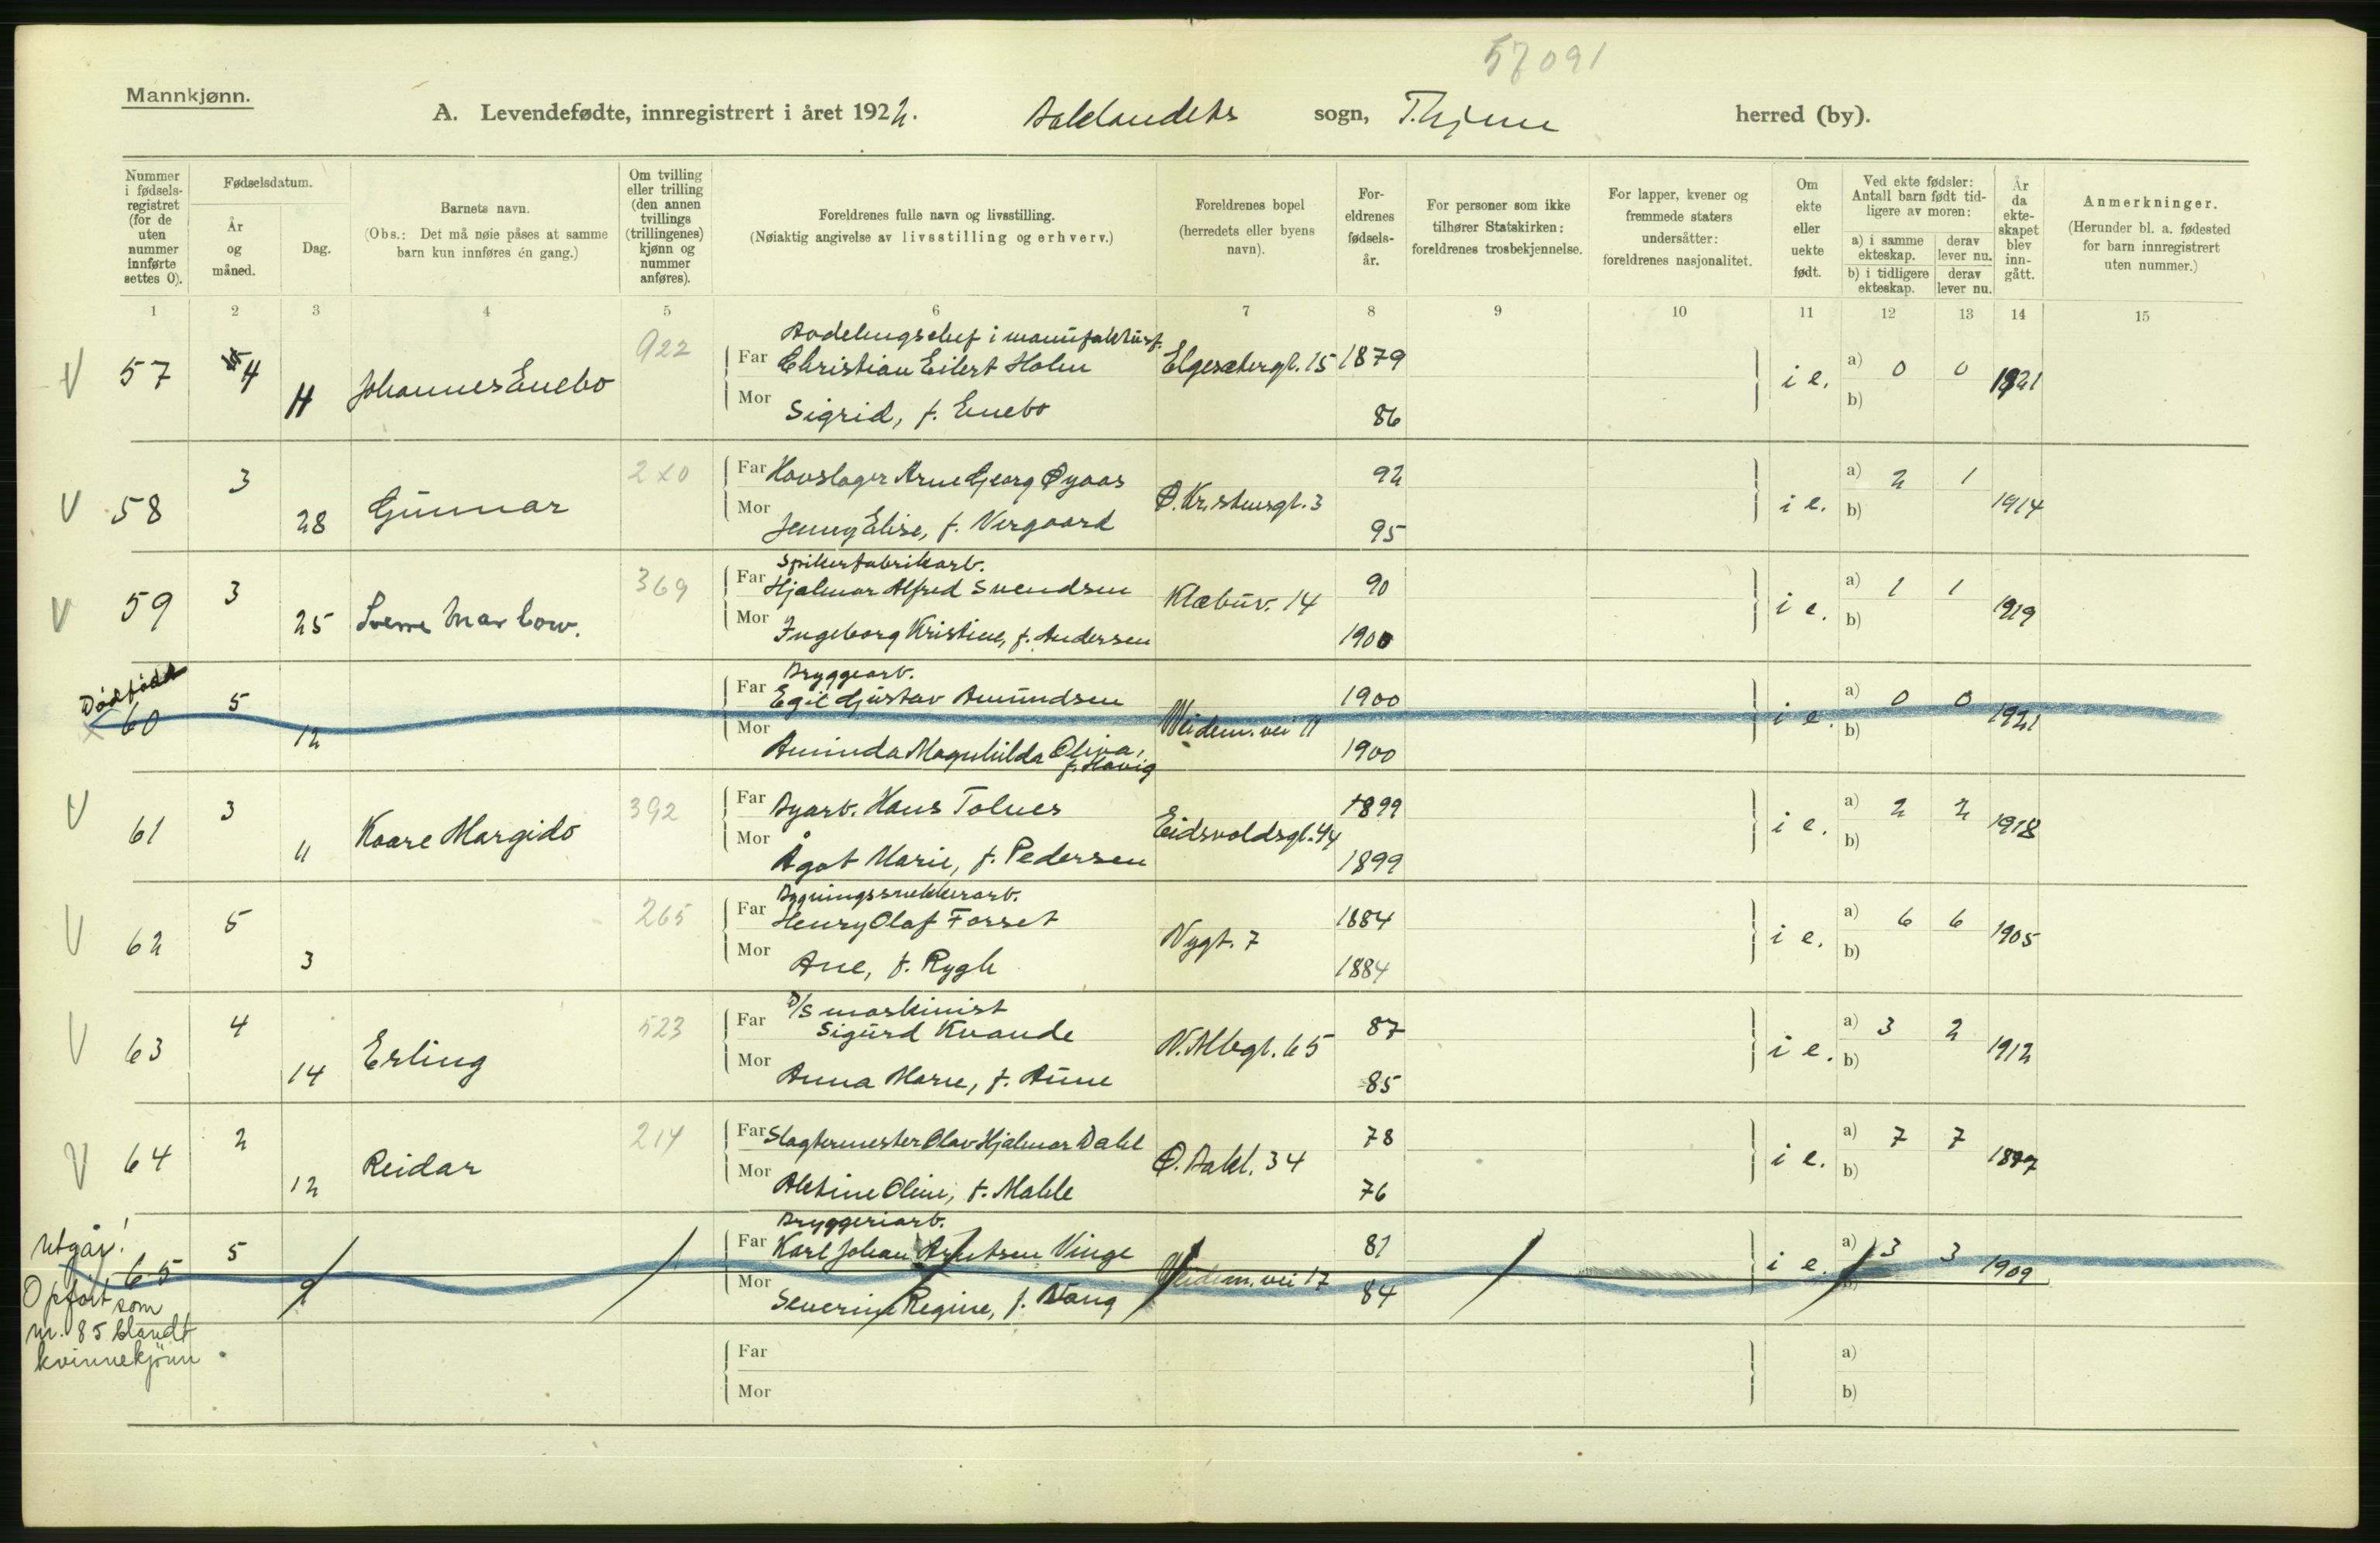 57091
Mannkjønn.
A. Levendefødte, innregistrert i året 1922. Baklandets sogn, T.hjem herred (by).
Nummer i fødselsregistret (for de uten nummer innførte settes 0).
Fødselsdatum.
År og måned.
Dag.
Barnets navn.
(Obs.: Det må nøie påses at samme barn kun innføres én gang.)
Om tvilling eller trilling (den annen tvillings (trillingenes) kjønn og nummer anføres).
Foreldrenes fulle navn og livsstilling.
(Nøiaktig angivelse av livsstilling og erhverv.)
Foreldrenes bopel (herredets eller byens navn).
Foreldrenes fødselsår.
For personer som ikke tilhører Statskirken: foreldrenes trosbekjennelse.
For lapper, kvener og fremmede staters undersåtter: foreldrenes nasjonalitet.
Om ekte eller uekte født.
Ved ekte fødsler: Antall barn født tidligere av moren:
a) i samme ekteskap. derav lever nu.
b) i tidligere ekteskap. derav lever nu.
År da ekteskapet blev inngått.
Anmerkninger.
(Herunder bl. a. fødested for barn innregistrert uten nummer.)
1 2 3 4 5 6 7 8 9 10 11 12 13 14 15
V 57 4 11 Johannes Enebo 922
Avdelingschef i manufakturf.
Far Christian Eilert Holm Elgesætergt. 15 1879 i e. a) 0 0 1921
Mor Sigrid, f. Enebo 86 b)
V 58 3 28 Gunnar 220
Far Hovslager Arne Georg Øyaas Ø. Kristensgt. 3 92 i e. a) 2 1 1914
Mor Jenny Elise, f. Vergaard 95 b)
V 59 3 25 Sverre Marlow. 369
Spikerfabrikarb.
Far Hjalmar Alfred Svendsen Klæbuv. 14 90 i e. a) 1 1 1919
Mor Ingeborg Kristine, f. Andersen 1900 b)
Dødfødt
60 5 12
Bryggearb.
Far Egil Gustav Amundsen Weidem. vei 11 1900 i e. a) 0 0 1921
Mor Aminda Magnhilda Oliva, f. Havig 1900 b)
V 61 3 11 Kaare Margido 392
Far Byarb. Hans Tolnes Eidsvoldsgt. 44 1899 i e. a) 2 2 1918
Mor Ågot Marie, f. Pedersen 1899 b)
V 62 5 3 265
Bygningssnekkerarb.
Far Henry Olaf Forset Nygt. 7 1884 i e. a) 6 6 1905
Mor Ane, f. Rygh 1884 b)
V 63 4 14 Erling 523
D/S maskinist
Far Sigurd Kvande N. Allegt. 65 87 i e. a) 3 2 1912
Mor Anna Marie, f. Aune 85 b)
V 64 2 12 Reidar 214
Far Slagtermester Olav Hjalmar Dahl Ø. Bakl. 34 78 i e. a) 7 7 1897
Mor Alstine Oline, f. Mahle 76 b)
Utgår!
65 5 9
Bryggeriarb.
Far Karl Johan Arntsen Vinge Weidem. vei 17 81 i e. a) 3 3 1909
Mor Severine Regine, f. Vang 84 b)
Opført som
nr. 85 blandt
kvinnekjønn.
Far a)
Mor b)